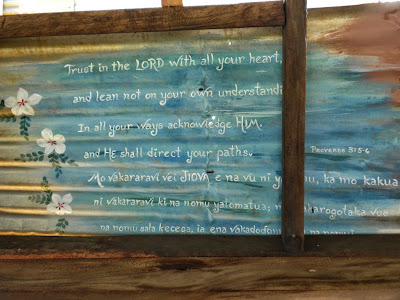 Trust in the LORD with all your heart,
and lean not on your own understandi
In all your ways acknowledge HIM.
and HE shall direct your paths.
Proverbs 3:5-6
Mo vakararavi vei JIOVA e na vu ni ya u, ka mo kakua
ni vakararavi ki na nomu yalomatua; n arogotaka vee
na nomu sala kecega, ia ena vakadodo